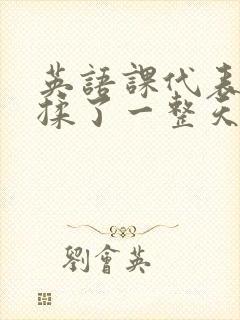 英語課代表
揉了一整天
劉會英